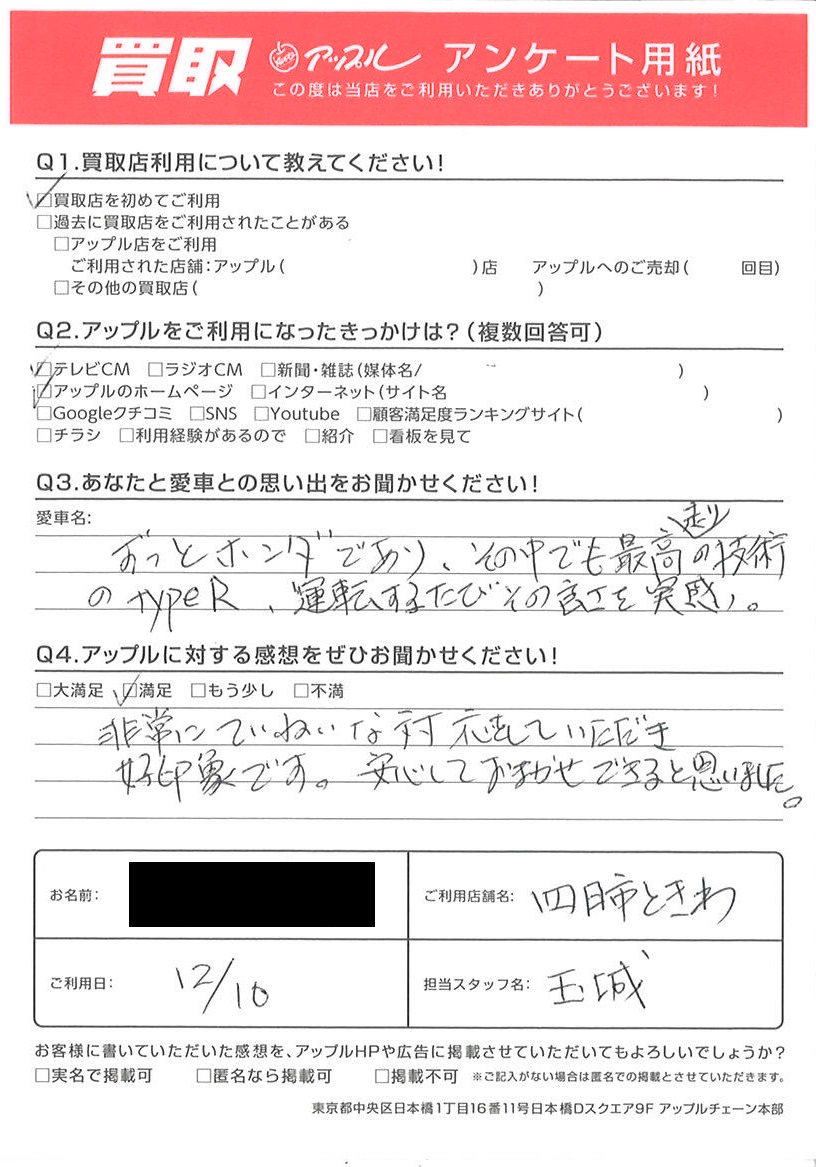 買取 アップル アンケート用紙
この度は当店をご利用いただきありがとうございます！
Q1.買取店利用について教えてください！
□買取店を初めてご利用
□過去に買取店をご利用されたことがある
□アップル店をご利用
ご利用された店舗：アップル（ ）店 アップルへのご売却（ 回目）
□その他の買取店（ ）
Q2.アップルをご利用になったきっかけは？（複数回答可）
□テレビCM □ラジオCM □新聞・雑誌（媒体名/ ）
□アップルのホームページ □インターネット（サイト名 ）
□Googleクチコミ □SNS □Youtube □顧客満足度ランキングサイト（ ）
□チラシ □利用経験があるので □紹介 □看板を見て
Q3.あなたと愛車との思い出をお聞かせください！
愛車名：
走り
ずっとホンダであり、その中でも最高の技術
のtypeR、運転するたびその良さを実感。
Q4.アップルに対する感想をぜひお聞かせください！
□大満足 □満足 □もう少し □不満
非常にていねいな対応をしていただき
好印象です。安心しておまかせできると思いました。
お名前：
ご利用店舗名： 四日市ときわ
ご利用日： 12/10
担当スタッフ名： 玉城
お客様に書いていただいた感想を、アップルHPや広告に掲載させていただいてもよろしいでしょうか？
□実名で掲載可 □匿名なら掲載可 □掲載不可 ※ご記入がない場合は匿名での掲載とさせていただきます。
東京都中央区日本橋1丁目16番11号日本橋Dスクエア9F アップルチェーン本部